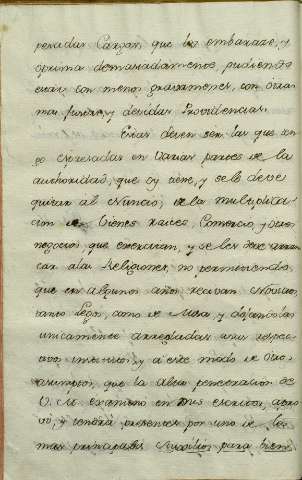 pesadas Cargas, que los embaraze, y
oprima demasiadamente, pudiendo
con menos gravamenes, con otras
mas justas, y devidas Providencias.
Estas deven ser las que ten
go expresadas en varias partes de la
authoridad, que oy tiene, y se le deve
quitar al Nuncio; de la multiplica
cion de Vienes raices, Comercio, y otros
negocios que exercitan, y se les deve arran
car a las Religiones, no permitiendo,
que en algunos años, recivan Novicios
tanto legos, como de Misa, y dejandolas
unicamente arregladas a sus respec
tivos institutos, y a este modo de otros
asumptos, que la alta penetracion de
V. M. examino en mis escritos, apro
vó, y tendrá presentes por uno de los
mas principales Auxilios para bien